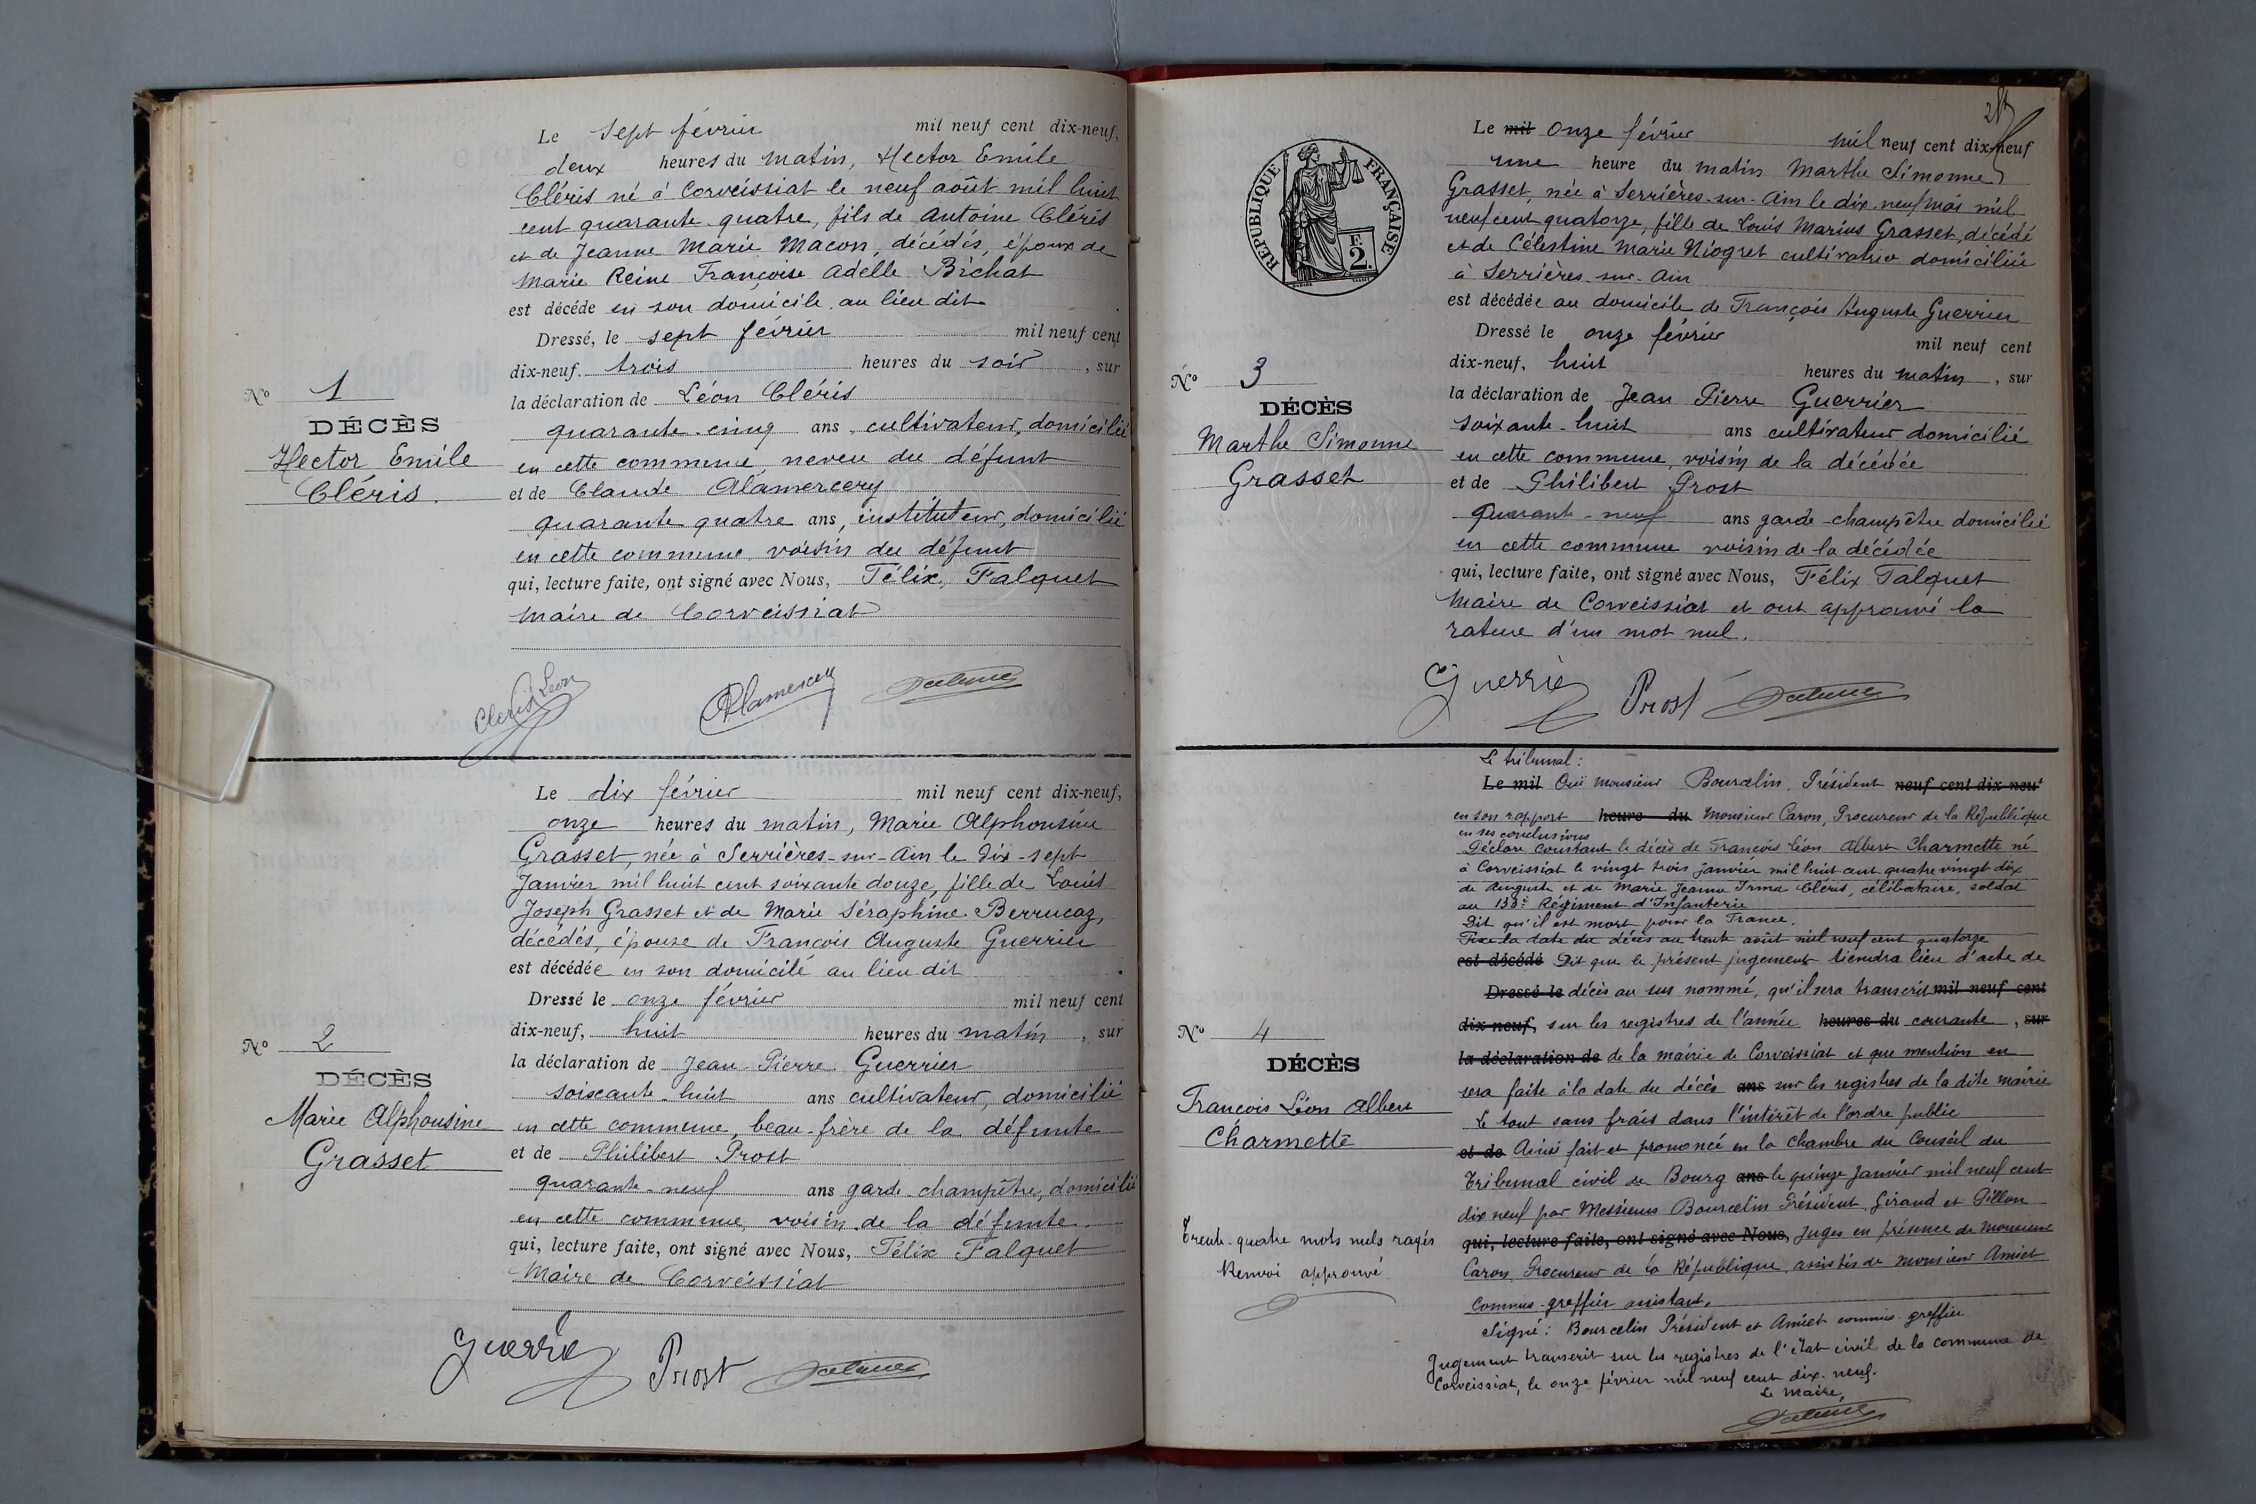 Le sept février mil neuf cent dix-neuf,
deux heures du matin, Hector Emile
Cléris né à Corveissiat le neuf août mil huit
cent quarante-quatre, fils de Antoine Cléris
et de Jeanne Marie Macon, décédés, époux de
Marie Reine Françoise Adèlle Bichat
est décédé en son domicile au lieu dit
Dressé, le sept février mil neuf cent
dix-neuf. trois heures du soir, sur
la déclaration de Léon Cléris
quarante-cinq ans, cultivateur, domicilié
en cette commune, neveu du défunt
et de Claude Alamercery
quarante quatre ans, instituteur, domicilié
en cette commune voisin du défunt
qui, lecture faite, ont signé avec Nous, Félix Falquet
Maire de Corveissiat
Nº 1
DÉCÈS
Hector Emile
Cléris.
Cleris Léon
Alamercery
Le dix février mil neuf cent dix-neuf,
onze heures du matin, Marie Alphonsine
Grasset, née à Serrières-sur-Ain le dix-sept
Janvier mil huit cent soixante douze, fille de Louis
Joseph Grasset et de Marie Séraphine Berrucaz,
décédés, épouse de François Auguste Guerrier
est décédée en son domicile au lieu dit
Dressé le onze février mil neuf cent
dix-neuf, huit heures du matin, sur
la déclaration de Jean Pierre Guerrier
soixante-huit ans cultivateur, domicilié
en cette commune, beau-frère de la défunte
et de Philibert Prost
quarante-neuf ans garde-champêtre, domicilié
en cette commune, voisin de la défunte.
qui, lecture faite, ont signé avec Nous, Félix Falquet
Maire de Corveissiat
Nº 2
DÉCÈS
Marie Alphonsine
Grasset
Guerrier
Prost
RÉPUBLIQUE FRANÇAISE
2F.
Le mil onze février mil neuf cent dix-neuf
une heure du matin Marthe Simonne
Grasset, née à Serrières-sur-Ain le dix-neuf mai mil
neuf cent quatorze, fille de Louis Marius Grasset, décédé
et de Célestine Marie Niogret cultivatrice domiciliée
à Serrières-sur-Ain
est décédée au domicile de François Auguste Guerrier
Dressé le onze février mil neuf cent
dix-neuf, huit heures du matin, sur
la déclaration de Jean Pierre Guerrier
soixante-huit ans cultivateur domicilié
en cette commune, voisin de la décédée
et de Philibert Prost
quarante-neuf ans garde-champêtre domicilié
en cette commune voisin de la décédée
qui, lecture faite, ont signé avec Nous, Félix Falquet
Maire de Corveissiat et ont approuvé la
rature d'un mot nul.
Nº 3
DÉCÈS
Marthe Simonne
Grasset
Guerrier
Prost
Le tribunal:
Le mil Ouï monsieur Bourcelin, Président neuf cent dix-neuf
en son rapport heure du Monsieur Caron, Procureur de la République
en ses conclusions
Déclare constant le décès de François Léon Albert Charmette né
à Corveissiat le vingt trois janvier mil huit cent quatre vingt dix
de Auguste et de Marie Jeanne Irma Cléris, célibataire, soldat
au 133e Régiment d'Infanterie
Dit qu'il est mort pour la France.
Fixe la date du décès au trente août mil neuf cent quatorze
est décédé Dit que le présent jugement tiendra lieu d'acte de
Dressé le décès au sus nommé, qu'il sera transcrit mil neuf cent
dix-neuf, sur les registres de l'année heures du courante, sur
la déclaration de de la mairie de Corveissiat et que mention en
sera faite à la date du décès ans sur les registres de la dite mairie
Le tout sans frais dans l'intérêt de l'ordre public
et de Ainsi fait et prononcé en la chambre du Conseil du
Tribunal civil de Bourg ans le quinze janvier mil neuf cent
dix neuf par Messieurs Bourcelin Président, Giraud et Pillon
qui, lecture faite, ont signé avec Nous, Juges en présence de Monsieur
Caron Procureur de la République, assistés de monsieur Amiet
Commis-greffier assistant.
Signé: Bourcelin Président et Amiet commis-greffier
Jugement transcrit sur les registres de l'état civil de la commune de
Corveissiat, le onze février mil neuf cent dix-neuf.
Le Maire,
Nº 4
DÉCÈS
François Léon Albert
Charmette
Trente-quatre mots nuls rayés
Renvoi approuvé